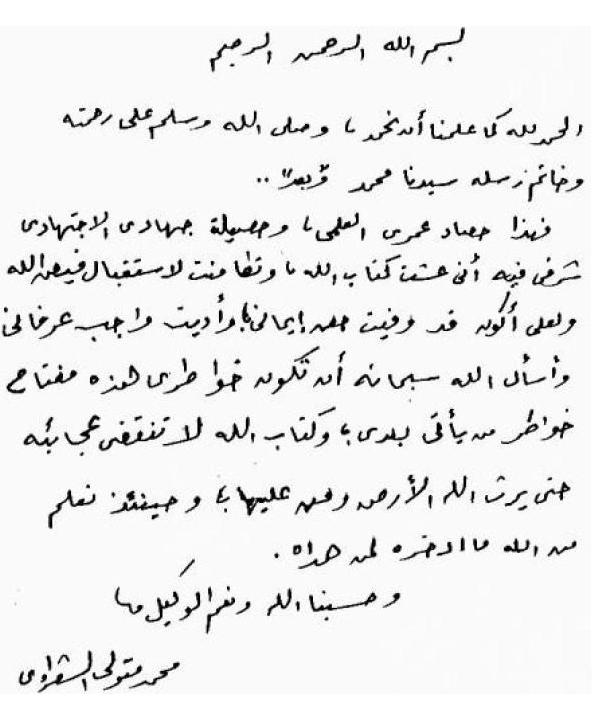 بسم الله الرحمن الرحيم
الحمد لله كما علمنا أن نحمد، وصلى الله وسلم على رحمته
وخاتم رسله سيدنا محمد وبعد ..
فهذا حصاد عمرى العلمى، وحصيلة جهادى الاجتهادى
شرفى فيه أنى عشت كتاب الله، وتطامنت لاستقبال فيض الله
ولعلى أكون قد وفيت حق إيمانى، وأديت واجب عرفانى
وأسأل الله سبحانه أن تكون خواطرى هذه مفتاح
خواطر من يأتى بعدى، وكتاب الله لا تنقضى عجائبه
حتى يرث الله الأرض ومن عليها، وحينئذ نعلم
من الله ما ادخره لمن هداه .
وحسبنا الله ونعم الوكيل
محمد متولى الشعراوى